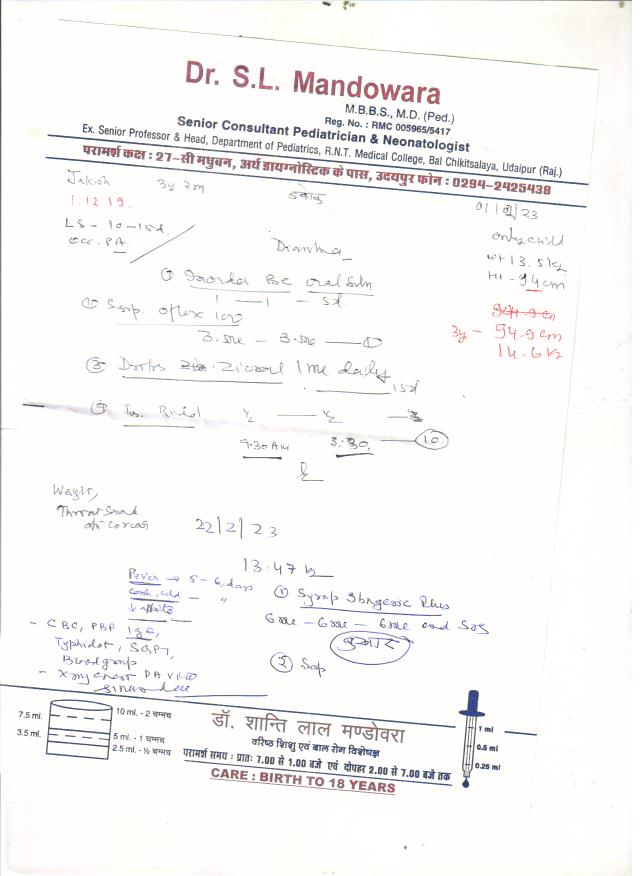 Dr. S.L. Mandowara
M.B.B.S., M.D. (Ped.)
Reg. No. : RMC 005965/5417
Senior Consultant Pediatrician & Neonatologist
Ex. Senior Professor & Head, Department of Pediatrics, R.N.T. Medical College, Bal Chikitsalaya, Udaipur (Raj.)
परामर्श कक्ष : 27-सी मधुवन, अर्थ डायग्नोस्टिक के पास, उदयपुर फोन : 0294-2425438
3y 2m
1.12.19.
LS - 10-15d
Occ. PA
only child
wt 13.5 kg
Ht - 94 cm
3y - 94.9 cm
14.6 k
BC oral
1 — 1 — 5d
① Syrup oflox 100
3.5ml - 3.5ml
③ Drops 1 ml daily
15d
½ — ½
9.30 AM 3.30. 10
Weight,
Throat
22/2/23
13.47 k
Fever → 5-6 days
Cough, cold - "
↓ appetite
① Syrup Ibugesic Plus
6ml - 6ml - 6ml and SOS
बुखार
② Syrup
- CBC, PBF IgE,
Typhidot, SGPT,
Blood group
- X ray chest PA view
7.5 ml.
3.5 ml.
10 ml. - 2 चम्मच
5 ml. - 1 चम्मच
2.5 ml. - ½ चम्मच
डॉ. शान्ति लाल मण्डोवरा
वरिष्ठ शिशु एवं बाल रोग विशेषज्ञ
परामर्श समय : प्रातः 7.00 से 1.00 बजे एवं दोपहर 2.00 से 7.00 बजे तक
CARE : BIRTH TO 18 YEARS
1 ml
0.5 ml
0.25 ml